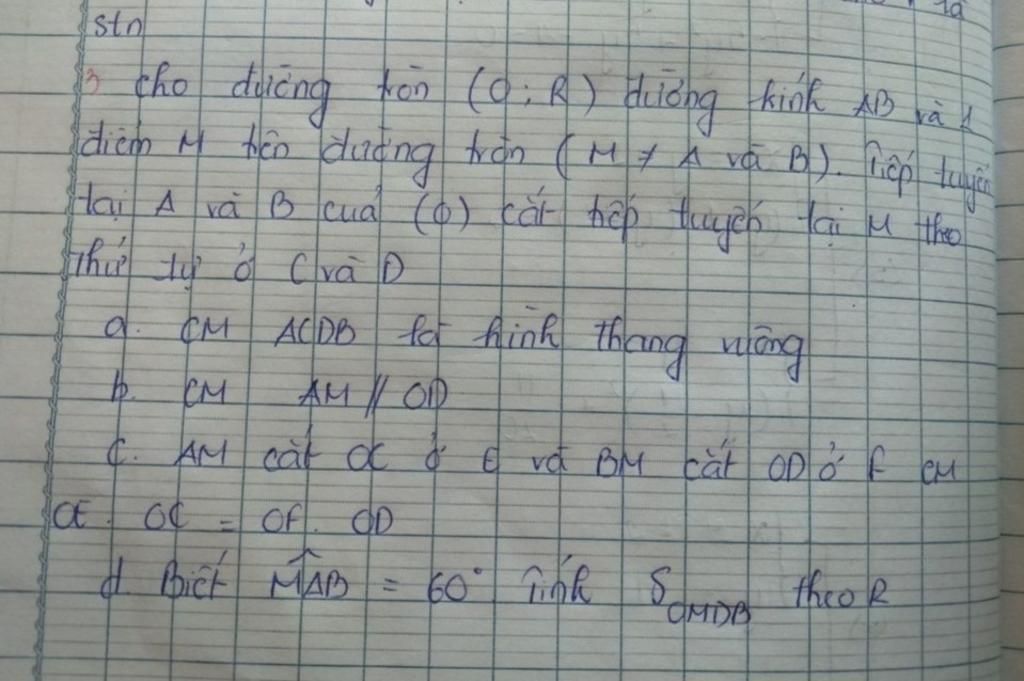 stn
3 cho đường tròn (O; R) đường kính AB và 1
điểm M trên đường tròn (M ≠ A và B). Tiếp tuyến
tại A và B của (O) cắt tiếp tuyến tại M theo
thứ tự ở C và D
a. CM ACDB là hình thang vuông
b. CM AM // OD
c. AM cắt OC ở E và BM cắt OD ở F CM
OE. OC = OF. OD
d. Biết MAB = 60° Tính S OMDB theo R